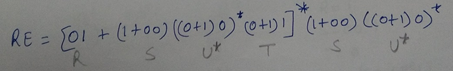 RE = [01 + (1+00)((0+1)0)*(0+1)1]*(1+00)((0+1)0)*
R S U* T S U*